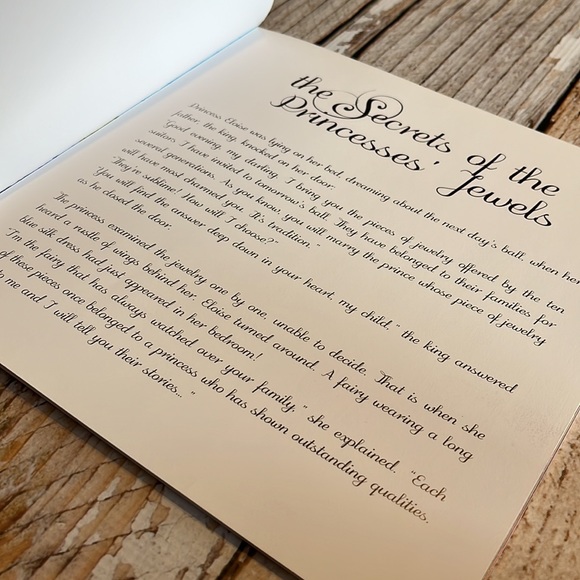 the Secrets of the
Princesses' Jewels
Princess Eloise was lying on her bed, dreaming about the next day's ball, when her
father, the king, knocked on her door.
"Good evening, my darling. I bring you the pieces of jewelry offered by the ten
suitors I have invited to tomorrow's ball. They have belonged to their families for
several generations. As you know, you will marry the prince whose piece of jewelry
will have most charmed you. It's tradition."
"They're sublime! How will I choose?"
"You will find the answer deep down in your heart, my child," the king answered
as he closed the door.
The princess examined the jewelry one by one, unable to decide. That is when she
heard a rustle of wings behind her. Eloise turned around. A fairy wearing a long
blue silk dress had just appeared in her bedroom!
"I'm the fairy that has always watched over your family," she explained. "Each
of these pieces once belonged to a princess who has shown outstanding qualities.
to me and I will tell you their stories..."